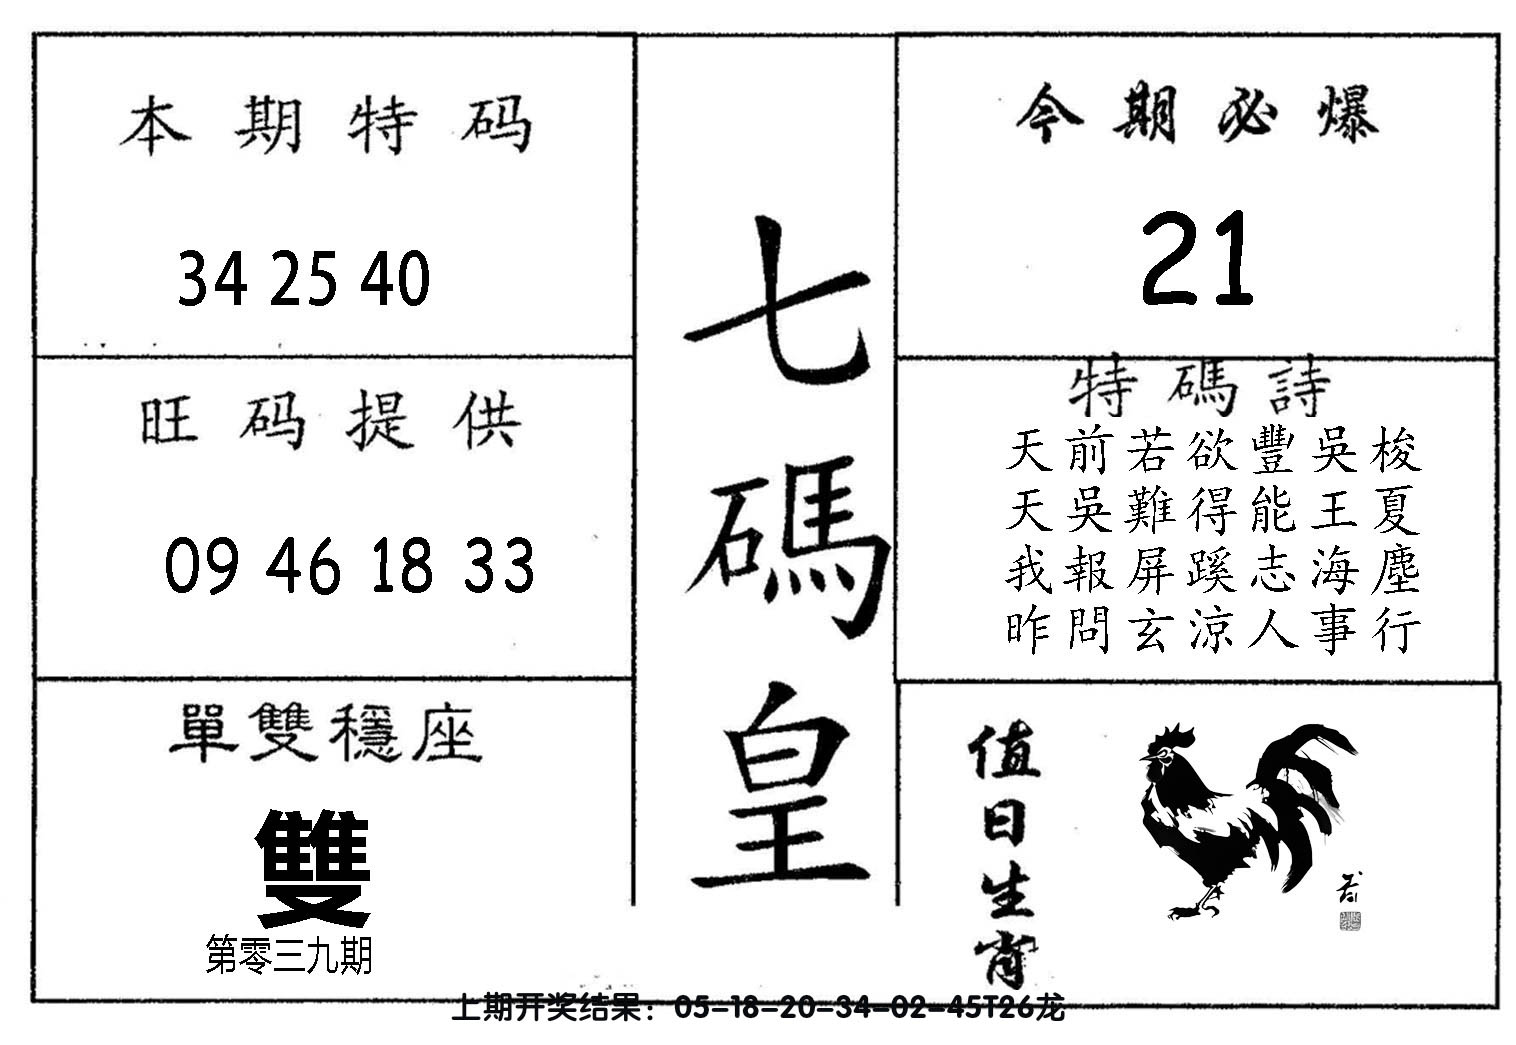 本期特码
34 25 40
旺码提供
09 46 18 33
單雙穩座
雙
第零三九期
七碼皇
今期必爆
21
特碼詩
天前若欲豐吳梭
天吳難得能王夏
我報屏蹊志海塵
昨問玄涼人事行
值日生肖
上期开奖结果：05-18-20-34-02-45T26龙